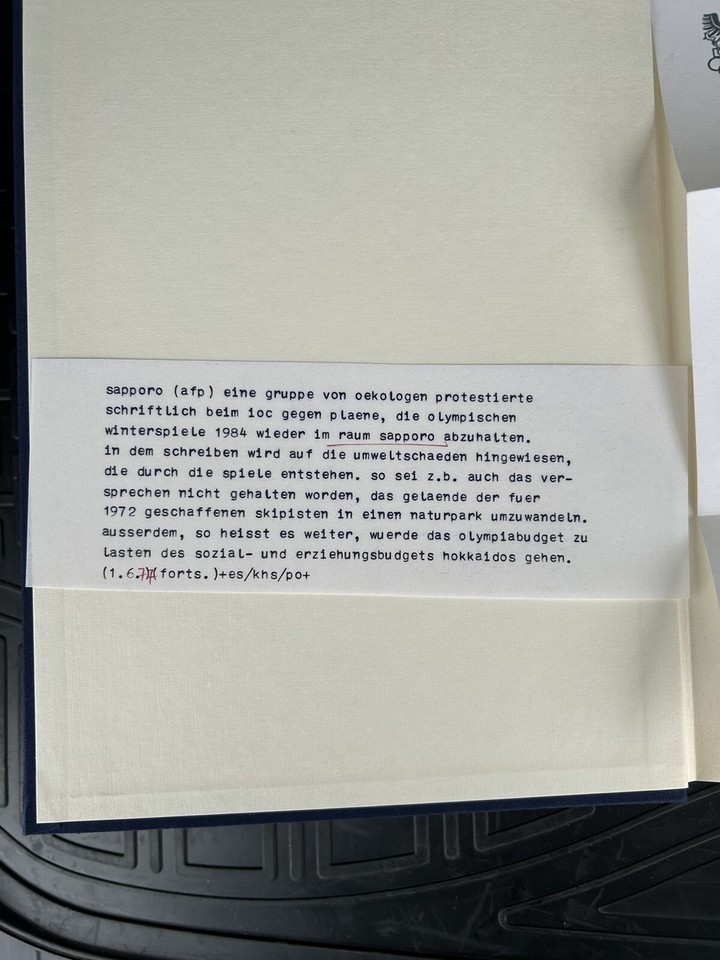 sapporo (afp) eine gruppe von oekologen protestierte
schriftlich beim ioc gegen plaene, die olympischen
winterspiele 1984 wieder im raum sapporo abzuhalten.
in dem schreiben wird auf die umweltschaeden hingewiesen,
die durch die spiele entstehen. so sei z.b. auch das ver-
sprechen nicht gehalten worden, das gelaende der fuer
1972 geschaffenen skipisten in einen naturpark umzuwandeln.
ausserdem, so heisst es weiter, wuerde das olympiabudget zu
lasten des sozial- und erziehungsbudgets hokkaidos gehen.
(1.6. forts.)+es/khs/po+